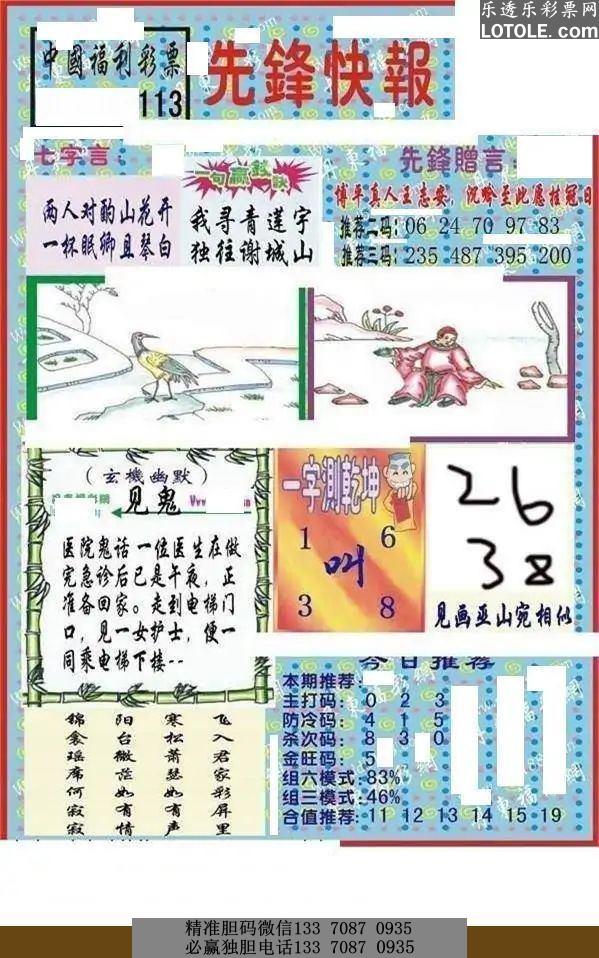 乐透乐彩票网
LOTOLE.COM
中國福利彩票
113
先鋒快報
七字言：
两人对酌山花开
一杯眠卿且琴白
一句赢
我寻青莲宇
独往谢城山
先鋒贈言：
博平真人王志安，沉吟至此愿挂冠日
推荐二码：06 24 70 97 83
推荐三码：235 487 395 200
（玄機幽默）
见鬼
医院鬼话 一位医生在做
完急诊后已是午夜，正
准备回家。走到电梯门
口，见一女护士，便一
同乘电梯下楼--
一字测乾坤
1 6
叫
3 8
26
38
见画巫山宛相似
今日推荐
本期推荐：
主打码：0 2 3
防冷码：4 1 5
杀次码：8 3 0
金旺码：5
组六模式：83%
组三模式：46%
合值推荐：11 12 13 14 15 19
锦 阳 寒 飞
衾 台 松 入
瑶 微 萧 君
席 茫 瑟 家
何 如 如 彩
寂 有 有 屏
寂 情 声 里
精准胆码微信133 7087 0935
必赢独胆电话133 7087 0935